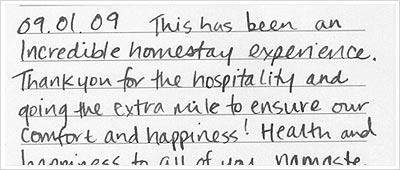 09.01.09 This has been an
Incredible homestay experience.
Thankyou for the hospitality and
going the extra mile to ensure our
comfort and happiness! Health and
happiness to all of you namaste